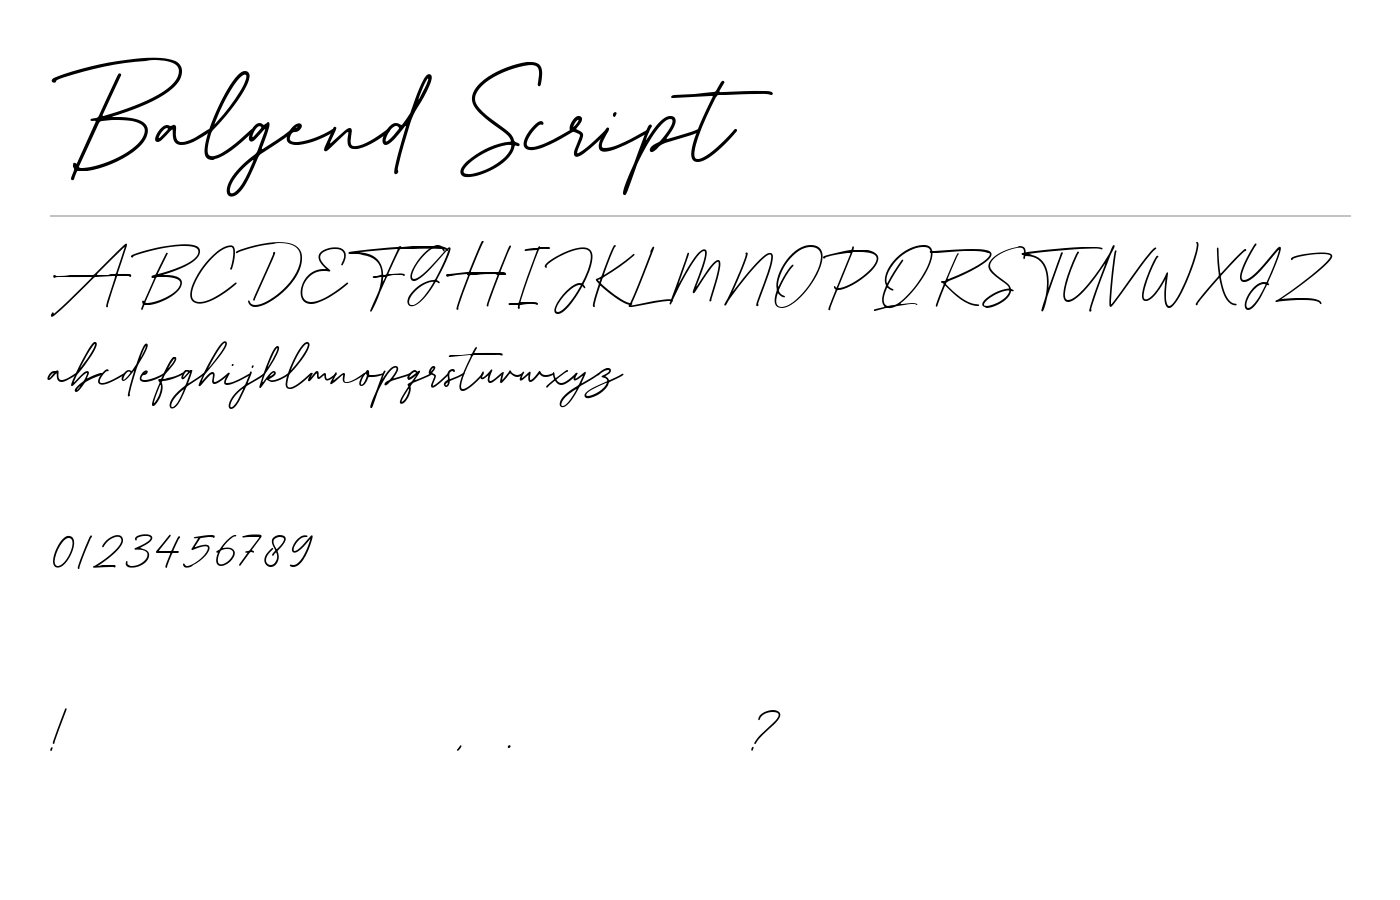 Balgend Script
ABCDEFGHIJKLMNOPQRSTUVWXYZ
abcdefghijklmnopqrstuvwxyz
0123456789
! , . ?